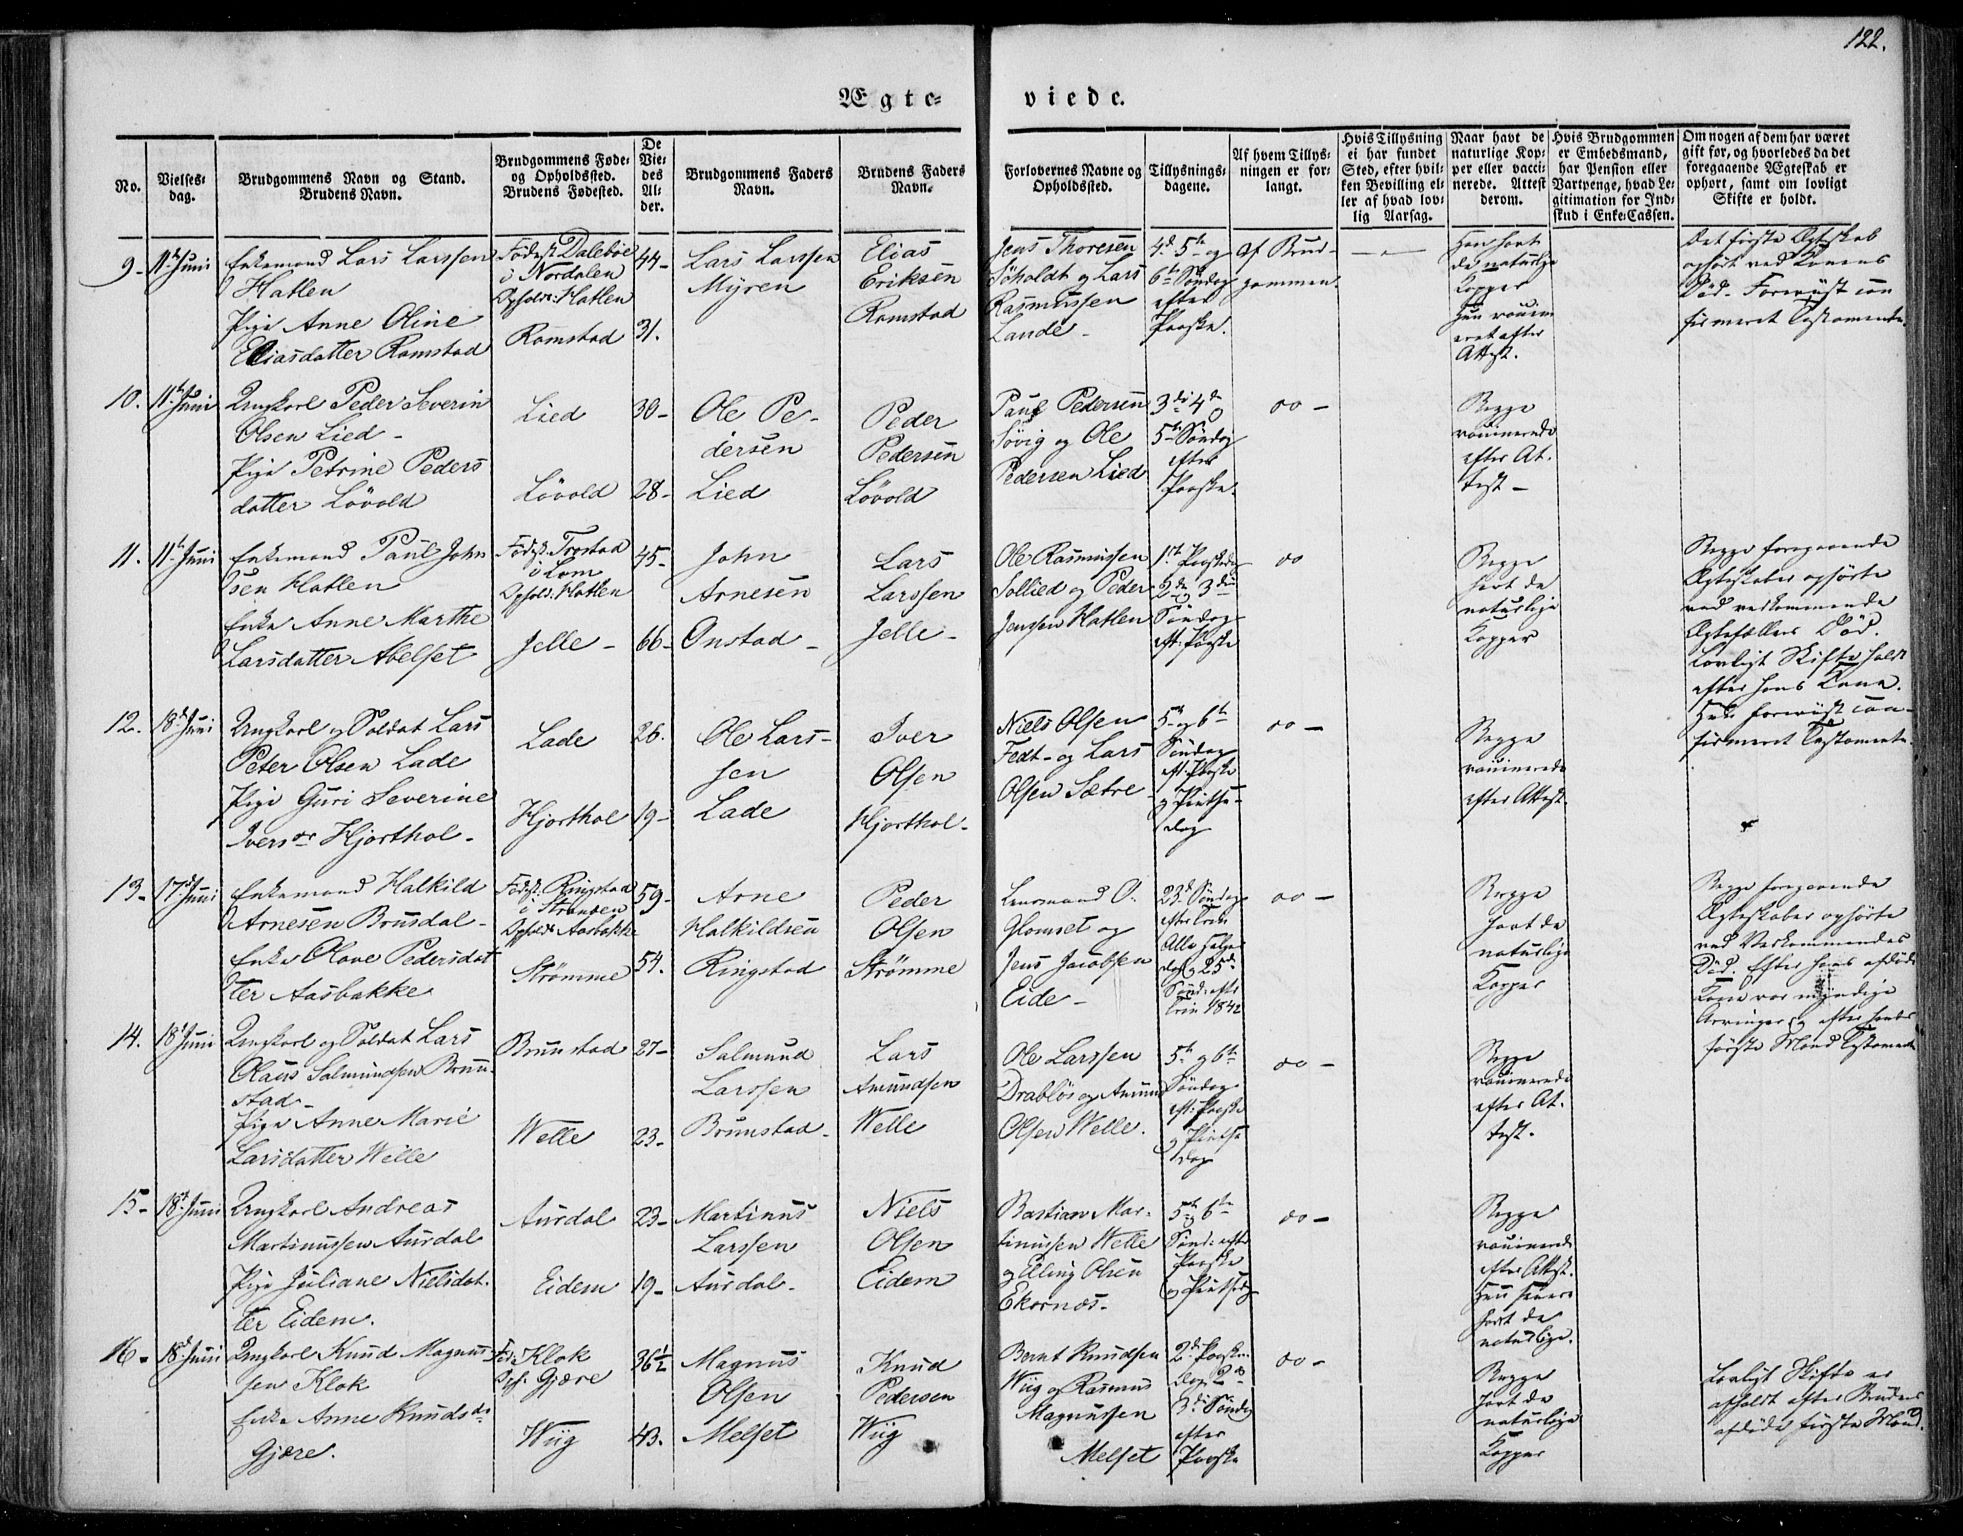 122.
Ægte-
viede.
No.
Vielses-
dag.
Brudgommens Navn og Stand.
Brudens Navn.
Brudgommens Føde-
og Opholdssted.
Brudens Fødested.
De
Vie-
des
Al-
der.
Brudgommens Faders
Navn.
Brudens Faders
Navn.
Forlovernes Navne og
Opholdssted.
Tillysnings-
dagene.
Af hvem Tillys-
ningen er for-
langt.
Hvis Tillysning
ei har fundet
Sted, efter hvil-
ken Bevilling el-
ler af hvad lov-
lig Aarsag.
Naar havt de
naturlige Kop-
per eller vacci-
nerede. Attest
derom.
Hvis Brudgommen
er Embedsmand,
har Pension eller
Vartpenge, hvad Le-
gitimation for Ind-
skud i Enke-Cassen.
Om nogen af dem har været
gift før, og hvorledes da det
foregaaende Ægteskab er
ophørt, samt om lovligt
Skifte er holdt.
9-
11te Juni
Enkemand Lars Larssen
Hatlen
Pige Anne Oline
Eliasdatter Ramstad
Fødest. Dalebøe
i Nordalen
Opholds: Hatlen
Ramstad
44-
31.
Lars Larssen
Myren
Elias
Eriksen
Ramstad
Jens Thoresen
Søholdt og Lars
Rasmussen
Lande-
4de 5te og
6te Søndag
efter
Paaske.
af Brud-
gommen.
Han havt
de naturlige
Kopper
Hun vaccin
eret efter
Attest.
Det første Ægteskab
ophørt ved Konens
Død. Forevist con
firmeret Testamente.
10.
11te Juni
Ungkarl Peder Severin
Olsen Lied-
Pige Petrine Peders
datter Løvold
Lied
Løvold
30-
28-
Ole Pe-
dersen
Lied
Peder
Pedersen
Løvold
Paul Pedersen
Søvig og Ole
Pedersen Lied
3die 4de
5te Søndag
efter
Paaske.
oo-
Begge
vaccinerede
efter At-
test-
11.
11te Juni
Enkemand Paul John
sen Hatlen
Enke Anne Marthe
Larsdatter Abelset
Fødest. Trostad
i Lom
Ophold: Hatlen
Jelle-
45-
66-
John
Arnesen
Onstad-
Lars
Larssen
Jelle-
Ole Rasmussen
Sollied og Peder
Jenssen Hatlen
1ste Paaskedag
2den og 3die
Søndag
eft: Paaske
oo
Begge
havt de
naturlige
Kopper
Begge foregaaende
Ægteskaber ophørte
ved vedkommende
Ægtefællers Død.
Lovligt Skifte holdt
efter hans Kone.
Hun forevist con-
firmeret Testamente.
12.
18de Juni
Ungkarl og Soldat Lars
Peter Olsen Lade
Pige Guri Severine
Iversdr Hjorthol-
Lade
Hjorthol
26.
19-
Ole Lars-
sen
Lade
Iver
Olsen
Hjorthol-
Niels Olsen
Fedt- og Lars
Olsen Sætre-
5te og 6te
Søndag
eft: Paaske
og Pintse-
dag
oo-
Begge
vaccinerede
efter Attest.
13-
17de Juni
Enkemand Halkild
Arnesen Brusdal-
Enke Olave Pedersdat
ter Aasbakke
Fødest. Ringstad
i Stranden
Opholds Aasbakke
Strømme
59-
54.
Arne
Halkildsen
Ringstad
Peder
Olsen
Strømme
Lensmand O.
Glomset og
Jens Jacobsen
Eide-
23de Søndag
efter Trin:
Alle Helge
dag og 25de
Sønd: efter
Trin 1842
oo-
Begge
havt de
naturlige
Kopper
Begge foregaaende
Ægteskaber ophørte
ved Vedkommendes
Død. Efter hans afdøde
Kone var myndige
Arvinger og efter hendes
første Mand Testamente
14.
18de Juni
Ungkarl og Soldat Lars
Olaus Salmundsen Brun-
stad-
Pige Anne Marie
Larsdatter Welle
Brunstad
Welle
27-
23-
Salmund
Larssen
Brunstad-
Lars
Amundsen
Welle
Ole Larssen
Drabløs og Amund
Olsen Welle.
5te og 6te
Søndag
eft: Paaske
og Pintse
dag
oo-
Begge
vaccinerede
efter At-
test.
15-
18de Juni
Ungkarl Andreas
Martinussen Aursdal
Pige Juliane Nielsdat-
ter Eidem.
Aursdal
Eidem
23-
19-
Martinus
Larssen
Aursdal-
Niels
Olsen
Eidem
Bastian Mar-
tinussen Welle
og Elling Olsen
Ekornæs-
5te og 6te
Sønd: efter
Paaske
og Pintsedag
oo-
Begge
vaccinerede
efter Attest.
Hun senere
havt de
naturlige.
16-
18de Juni
Ungkarl Knud Magnus-
sen Klok
Enke Anne Knudsdr
Gjære.
Fød: Klok
Oph: Gjære
Wiig
36½
43.
Magnus
Olsen
Melset
Knud
Pedersen
Wiig
Bernt Knudsen
Wiig og Rasmus
Magnussen
Melset
2den Paaske-
dag 2den
3die Søndag
efter
Paaske
oo-
Begge
havt de
naturlige
Kopper
Lovligt Skifte er
afholdt efter Brudens
afdøde første Mand.